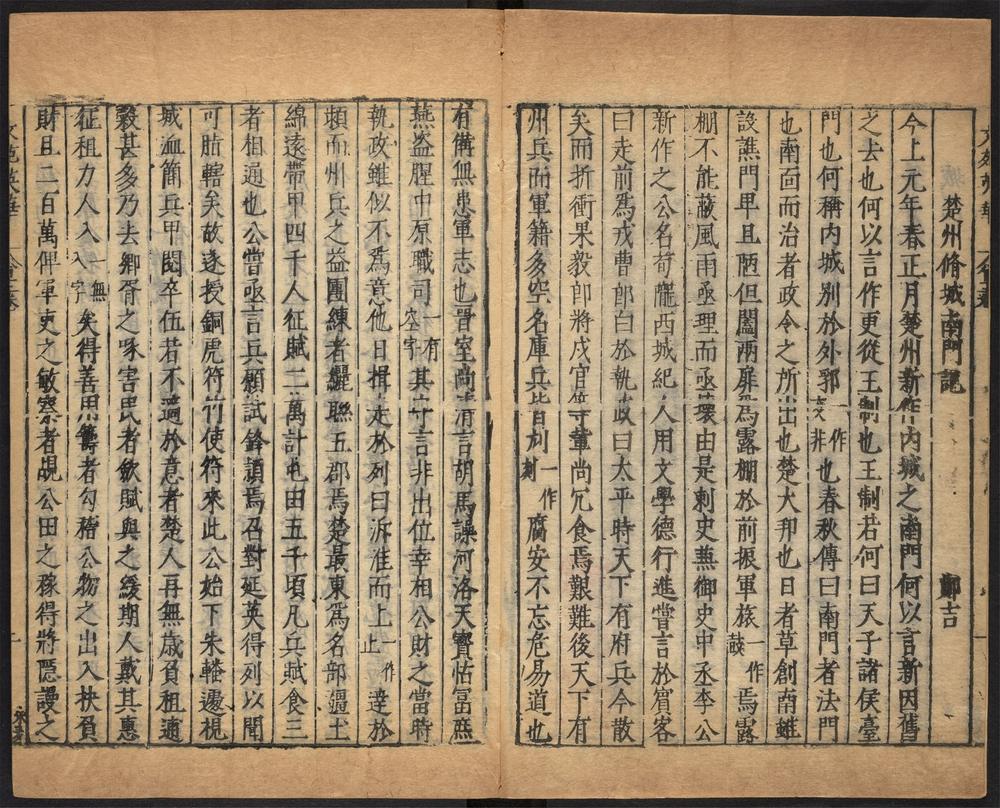 楚州脩城南門記 鄭吉
今上元年春正月楚州新作内城之南門何以言新因舊
之去也何以言作更從王制也王制若何曰天子諸侯臺
門也何稱内城別於外郛一作文非也春秋傳曰南門者法門
也南面而治者政令之所出也楚大邦也日者草創南雖
設譙門甲且陋但闔兩扉爲露棚於前振軍旅一作鼓焉露
棚不能蔽風雨亟理而亟壞由是刺史兼御史中丞李公
新作之公名荀隴西城紀人用文學德行進嘗言於賓客
曰走前爲戎曹郎白於執政曰太平時天下有府兵今散
矣而折衝果毅郎將戍官等輩尚冗食焉艱難後天下有
州兵而軍籍多空名庫兵皆刓一作刻腐安不忘危易道也
有備無患軍志也晋室尚清言胡馬譟河洛天寶怙富庶
燕盗腥中原職司一有空字其守言非出位幸相公財之當時
執政雖似不爲意他日揖走於列曰泝淮而上一作止達於
頴而州兵之益團練者儷聯五郡焉楚最東爲名郡疆土
綿遠帶甲四千人征賦二萬計屯由五千頃凡兵賦食三
者相通也公嘗亟言兵願試鋒頴焉召對延英得列以聞
可脂轄矣故遂授銅虎符竹使符來此公始下朱轓邊視
城洫簡兵甲閲卒伍若不適於意者楚人再無歲負租逋
穀甚多乃去鄉胥之啄害民者歛賦與之緩期人戴其惠
征租力人入一無入字矣得善用籌者勾稽公物之出入抉負
財且二百萬俾軍吏之敏察者覘公田之稼得將隱謾之